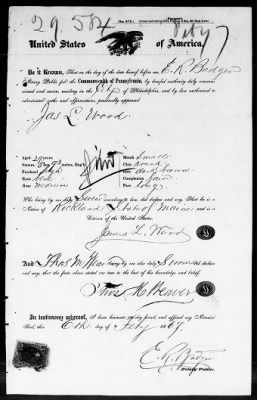 29,584
United States of America.
Be it Known, That on the day of the date hereof before me E. R. Badger
a Notary Public for the Commonwealth of Pennsylvania, by lawful authority duly commissioned
sworn, and residing in the City of Philadelphia, and by law authorized to
administer oaths and affirmations, personally appeared
Jas L Wood
Aged
Mouth small
Chin round
Forehead high
Hair dark brown
Eyes blue
Complexion fair
Nose medium
Face long
Who being by me duly sworn according to law, did depose and say, That he is a
Native of Rockland State of Maine and is a
Citizen of the United States.
James L. Wood
And Thos M. Weaver being by me also duly Sworn did
depose and say, that the facts above stated are true to the best of his knowledge and belief.
Thos M. Weaver
In testimony whereof, I have hereunto set my hand and affixed my Notarial
Seal, this 6th day of Feby 1867.
E. R. Badger
Notary Public.